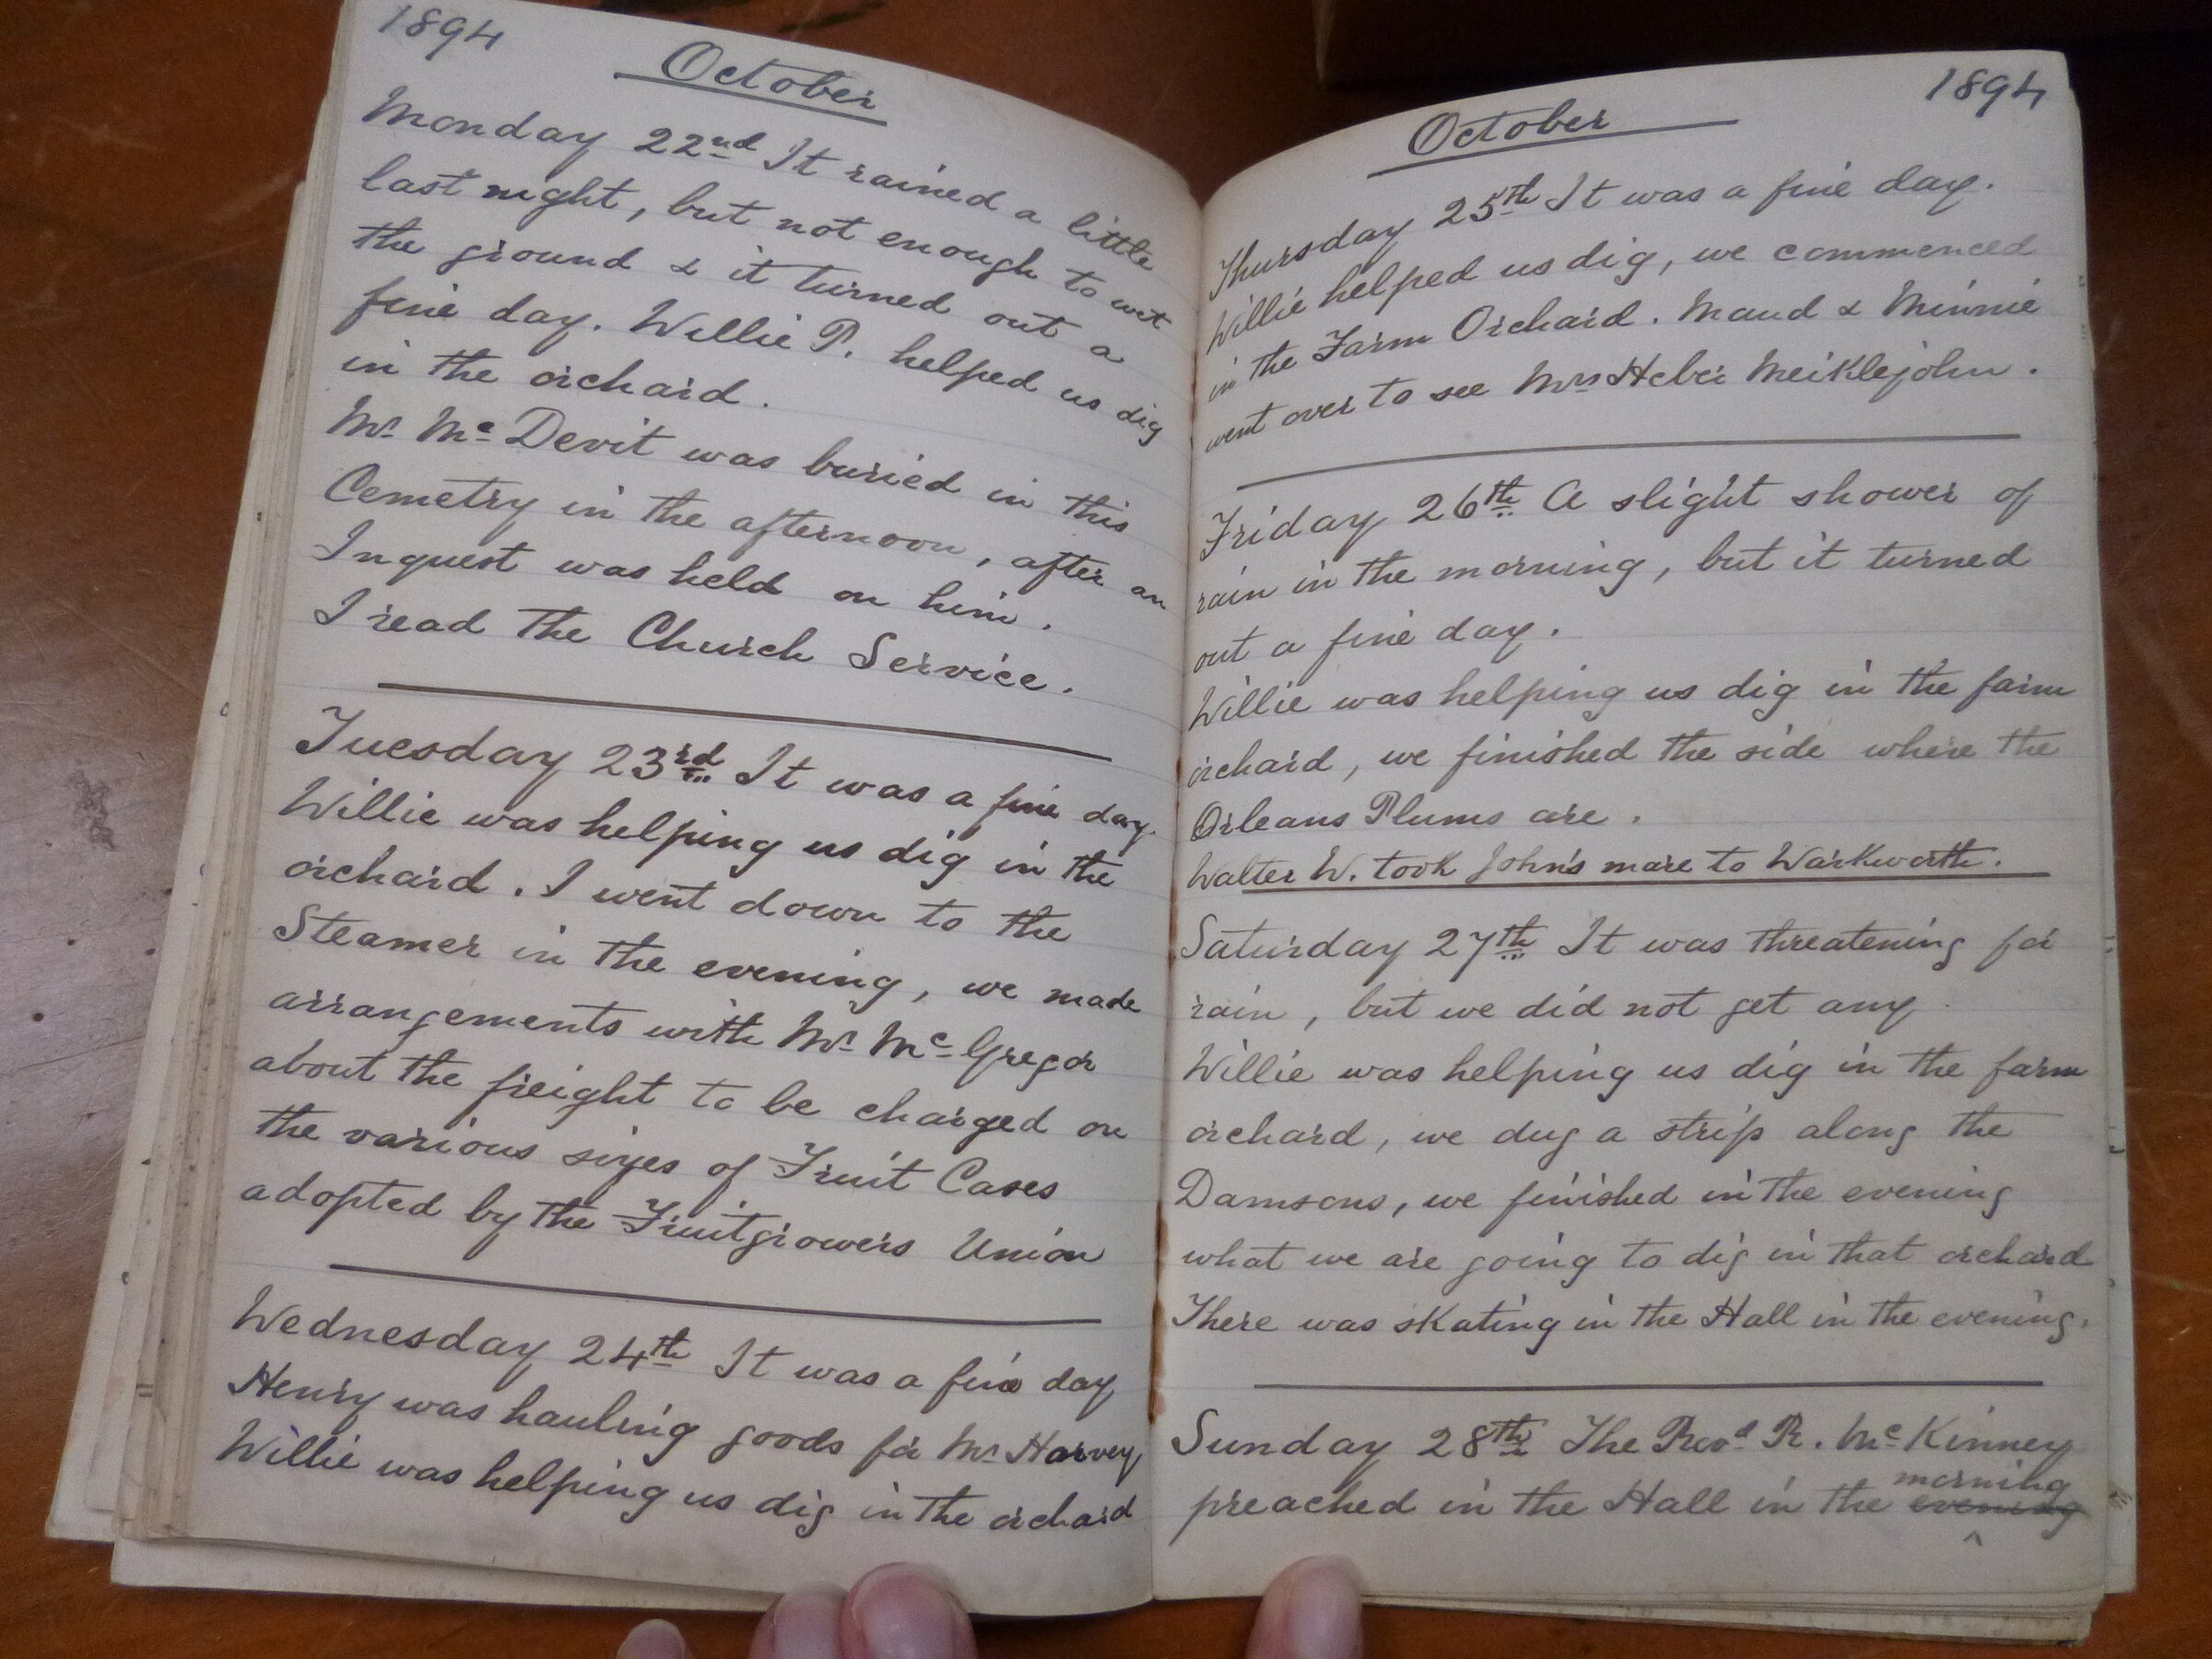 1894
October
Monday 22nd It rained a little
last night, but not enough to wet
the ground & it turned out a
fine day. Willie P. helped us dig
in the orchard.
Mr McDevit was buried in this
Cemetry in the afternoon, after an
Inquest was held on him.
I read the Church Service.
Tuesday 23rd It was a fine day.
Willie was helping us dig in the
orchard. I went down to the
Steamer in the evening, we made
arrangements with Mr McGregor
about the freight to be charged on
the various sizes of Fruit Cases
adopted by the Fruitgrowers Union
Wednesday 24th It was a fine day
Henry was hauling goods for Mr Harvey
Willie was helping us dig in the orchard
1894
October
Thursday 25th It was a fine day.
Willie helped us dig, we commenced
in the Farm Orchard. Maud & Minnie
went over to see Mrs Heber Meiklejohn.
Friday 26th A slight shower of
rain in the morning, but it turned
out a fine day.
Willie was helping us dig in the farm
orchard, we finished the side where the
Orleans Plums are.
Walter W. took John's mare to Warkworth.
Saturday 27th It was threatening for
rain, but we did not get any
Willie was helping us dig in the farm
orchard, we dug a strip along the
Damsons, we finished in the evening
what we are going to dig in that orchard
There was skating in the Hall in the evening.
Sunday 28th The Revd R. McKinney
morning
preached in the Hall in the evening
^